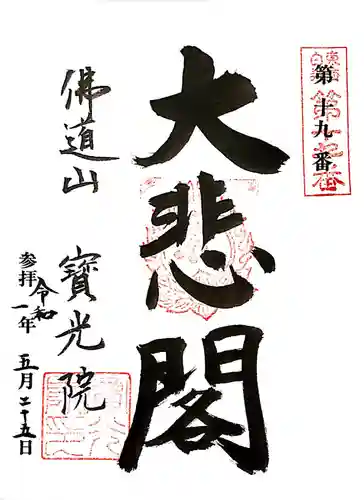 第十九番
大悲閣
佛道山
寶光院
参拝
令和一年
五月二十五日